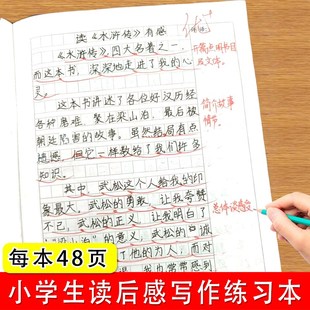 读《水浒传》有感
《水浒传》四大名著之一，
而这本书，深深地走进了我的心
灵。
这本书讲述了各位好汉历经
各种磨难，聚在梁山泊，最后被
朝廷陷害的故事，虽然结局有点
遗憾，但它一样教给了我们许多
知识。
其中，武松这个人给我的印
象最大，武松的勇敢，让我夸赞
不已，武松的正义，让我明白了
的意义，武松的
了他的为人，而对
我也常常感到
开篇点明书目
及文体。
简介故事
情节。
总体谈感受
每本48页
小学生读后感写作练习本